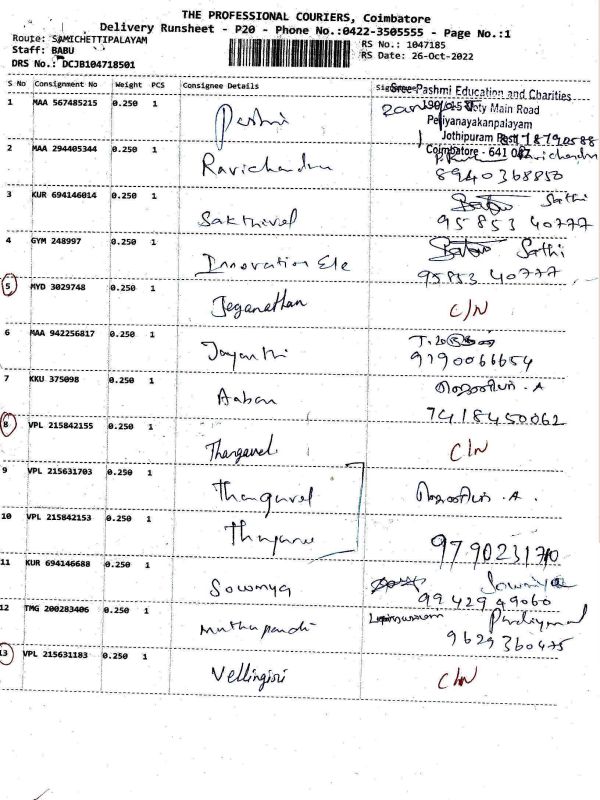 THE PROFESSIONAL COURIERS, Coimbatore
Delivery Runsheet - P20 - Phone No.:0422-3505555 - Page No.:1
Route: SAMICHETTIPALAYAM
RS No.: 1047185
Staff: BABU
RS Date: 26-Oct-2022
DRS No.: DCJB104718501
S No Consignment No Weight PCS Consignee Details
Sree Pashmi Education and Charities
1 MAA 567485215 0.250 1 Pashmi
Main Road
Periyanayakanpalayam
Jothipuram
Coimbatore - 641 047
2 MAA 294405344 0.250 1 Ravichandran Ravichandran
8940368850
3 KUR 694146014 0.250 1 Sakthivel Sathi
95853 40777
4 GYM 248997 0.250 1 Innovation Ele Sathi
95853 40777
5 MYD 3029748 0.250 1 Jeganathan C/N
6 MAA 942256817 0.250 1 Jayanthi
9190066654
7 KKU 375098 0.250 1 Aaban
7418450062
8 VPL 215842155 0.250 1 Thangavel C/N
9 VPL 215631703 0.250 1 Thangavel
10 VPL 215842153 0.250 1
11 KUR 694146688 0.250 1 Sowmya Sowmiya
99429 49060
12 TMG 200283406 0.250 1 Muthupandi
9629360475
13 VPL 215631183 0.250 1 Vellingiri C/N